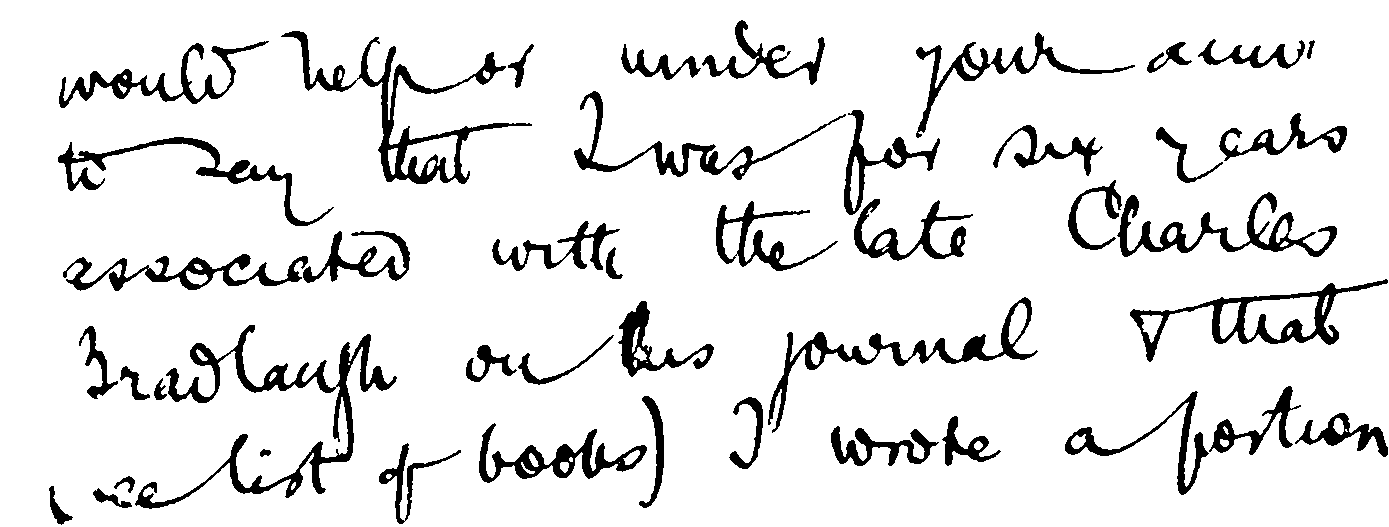 would help or hinder your aims
to say that I was for six years
associated with the late Charles
Bradlaugh on his journal & that
(see list of books) I wrote a portion